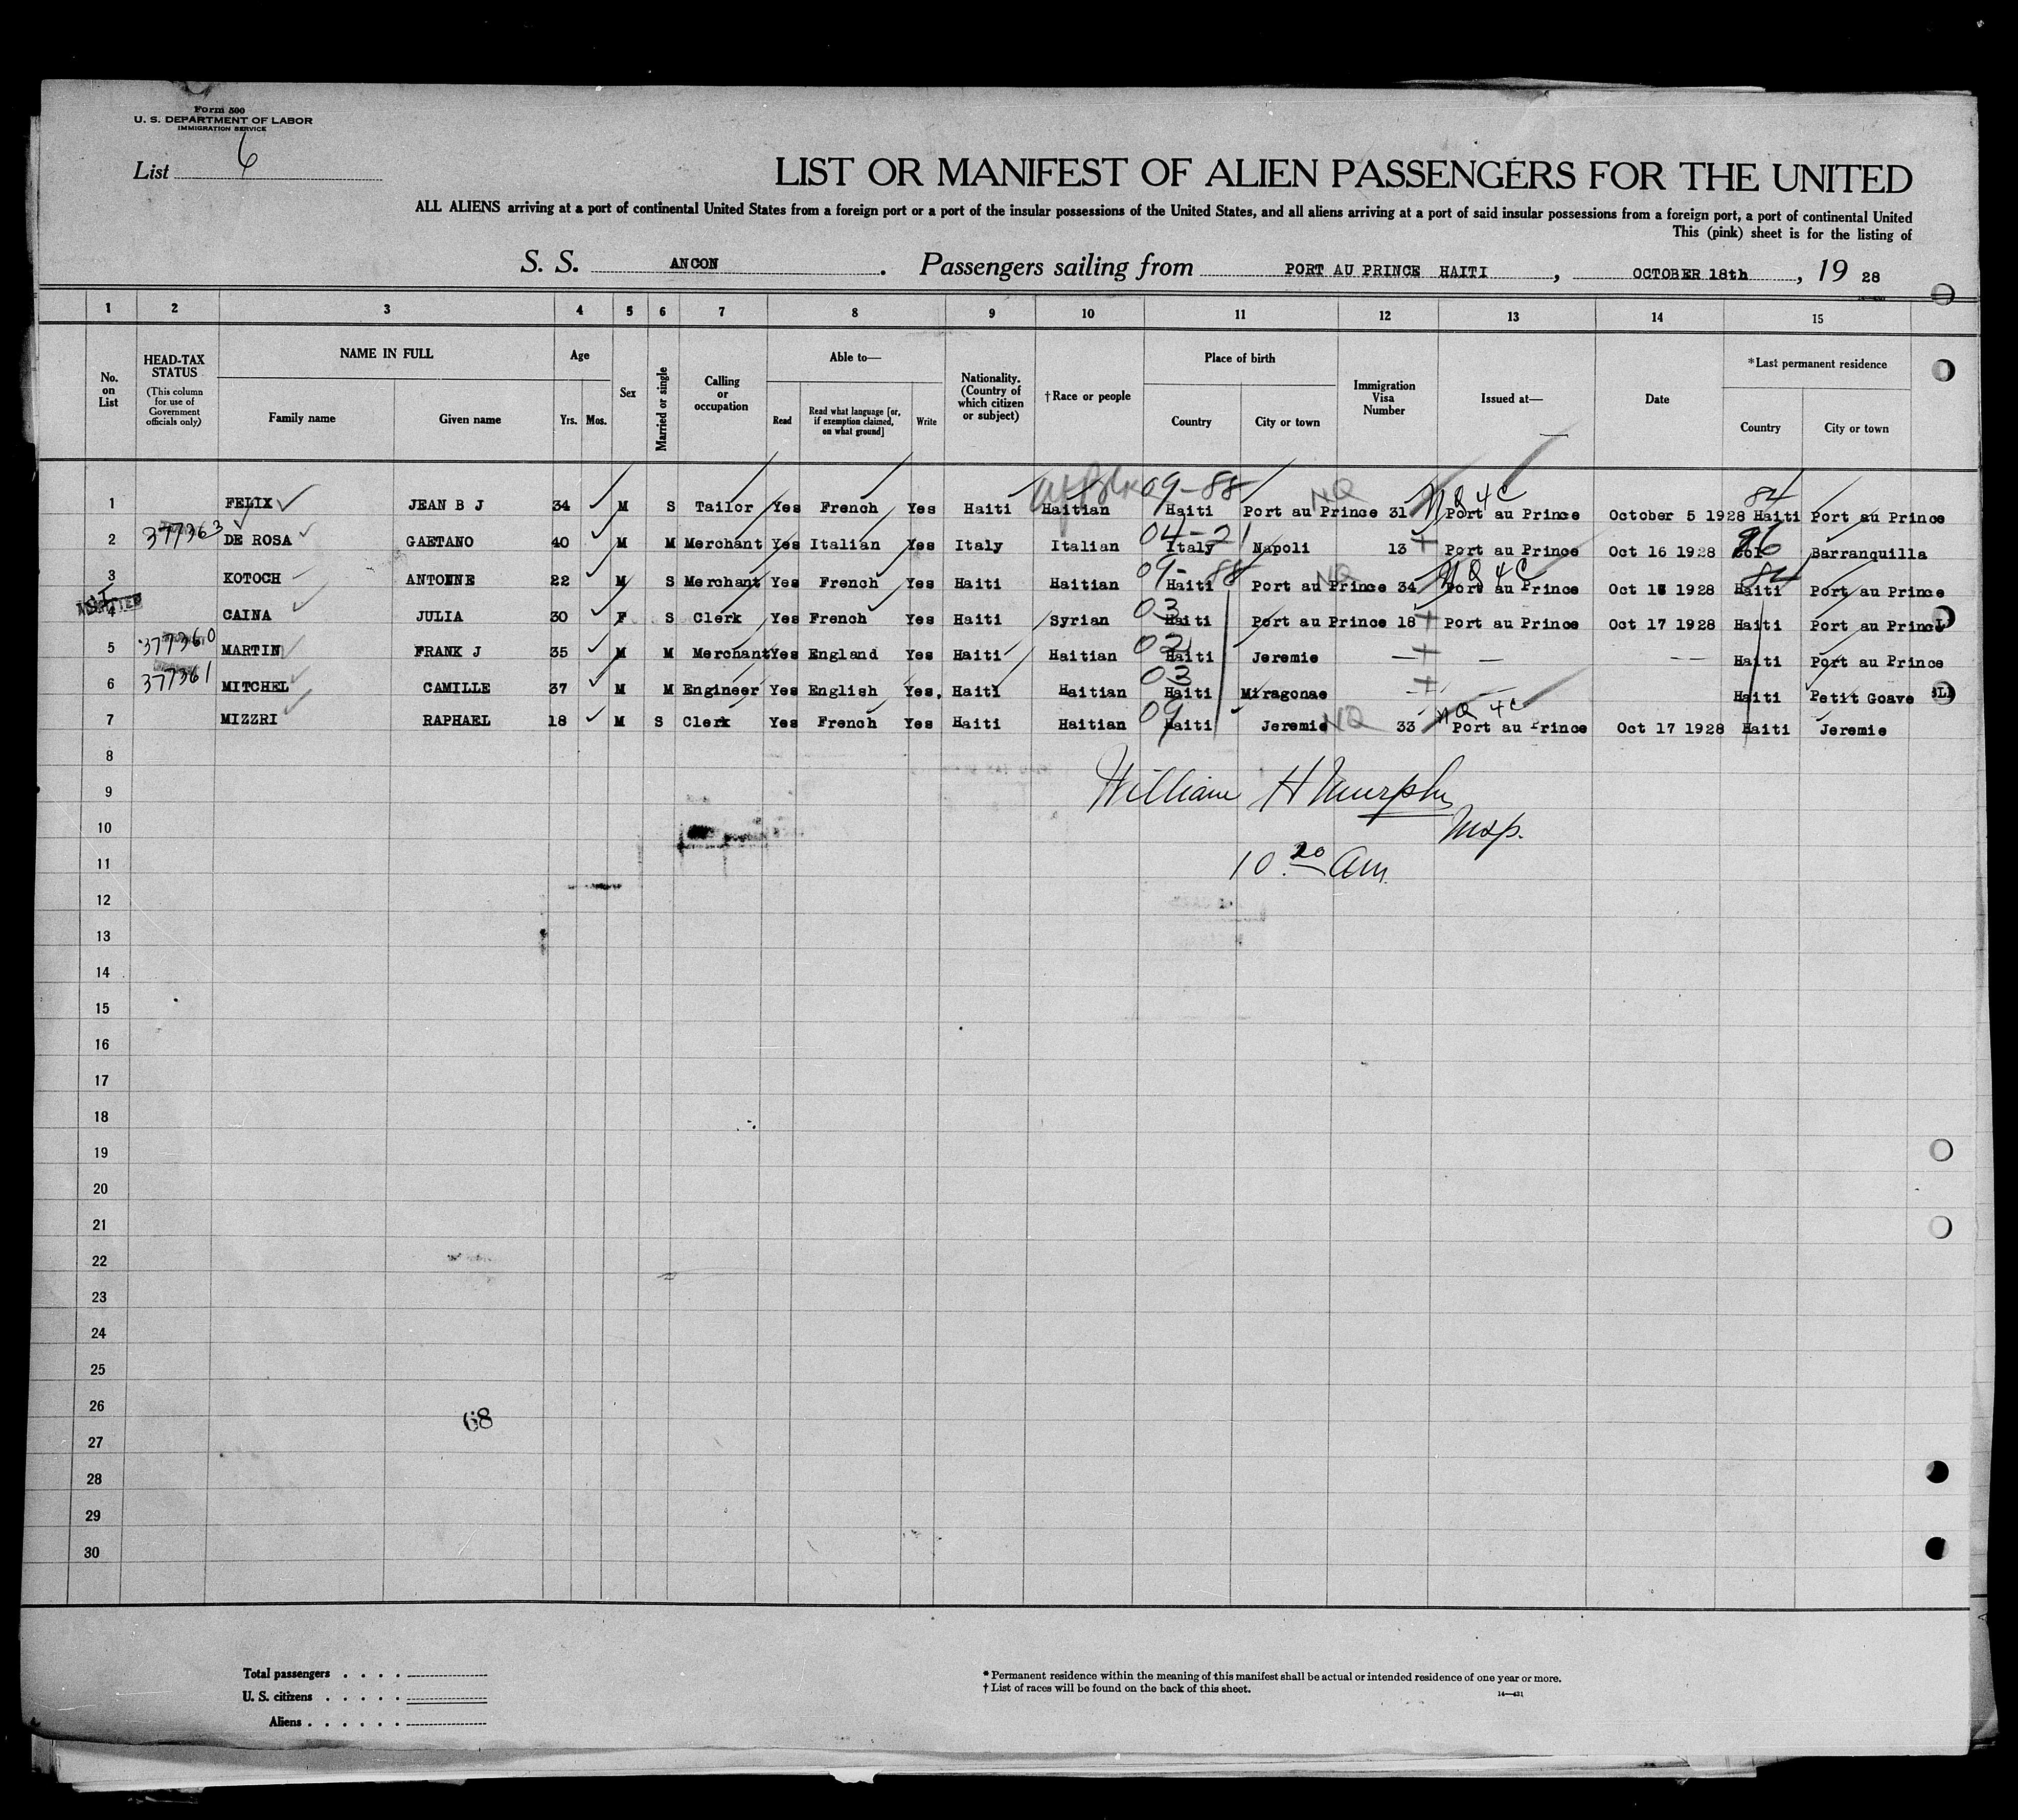 Form 500
U. S. DEPARTMENT OF LABOR
IMMIGRATION SERVICE
List 6
LIST OR MANIFEST OF ALIEN PASSENGERS FOR THE UNITED
ALL ALIENS arriving at a port of continental United States from a foreign port or a port of the insular possessions of the United States, and all aliens arriving at a port of said insular possessions from a foreign port, a port of continental United
This (pink) sheet is for the listing of
S. S. ANCON . Passengers sailing from PORT AU PRINCE HAITI , OCTOBER 18th , 19 28
1 2 3 4 5 6 7 8 9 10 11 12 13 14 15
No. on List
HEAD-TAX STATUS
(This column for use of Government officials only)
NAME IN FULL
Family name
Given name
Age
Yrs.
Mos.
Sex
Married or single
Calling or occupation
Able to—
Read
Read what language [or, if exemption claimed, on what ground]
Write
Nationality. (Country of which citizen or subject)
†Race or people
Place of birth
Country
City or town
Immigration Visa Number
Issued at—
Date
*Last permanent residence
Country
City or town
1 FELIX JEAN B J 34 M S Tailor Yes French Yes Haiti Haitian 09-88 Haiti Port au Prince NQ 31 NQ 4C Port au Prince October 5 1928 84 Haiti Port au Prince
2 377363 DE ROSA GAETANO 40 M M Merchant Yes Italian Yes Italy Italian 04-21 Italy Napoli 13 Port au Prince Oct 16 1928 Col Barranquilla
3 KOTOCH ANTONNE 22 M S Merchant Yes French Yes Haiti Haitian 09-88 Haiti Port au Prince NQ 34 NQ 4C Port au Prince Oct 18 1928 84 Haiti Port au Prince
4 ADMITTED CAINA JULIA 30 F S Clerk Yes French Yes Haiti Syrian 03 Haiti Port au Prince 18 Port au Prince Oct 17 1928 Haiti Port au Prince
5 377360 MARTIN FRANK J 35 M M Merchant Yes England Yes Haiti Haitian 02 Haiti Jeremie — — — — Haiti Port au Prince
6 377361 MITCHEL CAMILLE 37 M M Engineer Yes English Yes. Haiti Haitian 03 Haiti Miragonae — — Haiti Petit Goave
7 MIZZRI RAPHAEL 18 M S Clerk Yes French Yes Haiti Haitian 09 Haiti Jeremie NQ 33 NQ 4C Port au Prince Oct 17 1928 Haiti Jeremie
8
9
10
11
12
13
14
15
16
17
18
19
20
21
22
23
24
25
26
27
28
29
30
William H Murphy
Insp.
10 20 am.
68
Total passengers . . . .
U. S. citizens . . . . .
Aliens . . . . . .
* Permanent residence within the meaning of this manifest shall be actual or intended residence of one year or more.
† List of races will be found on the back of this sheet.
14—431